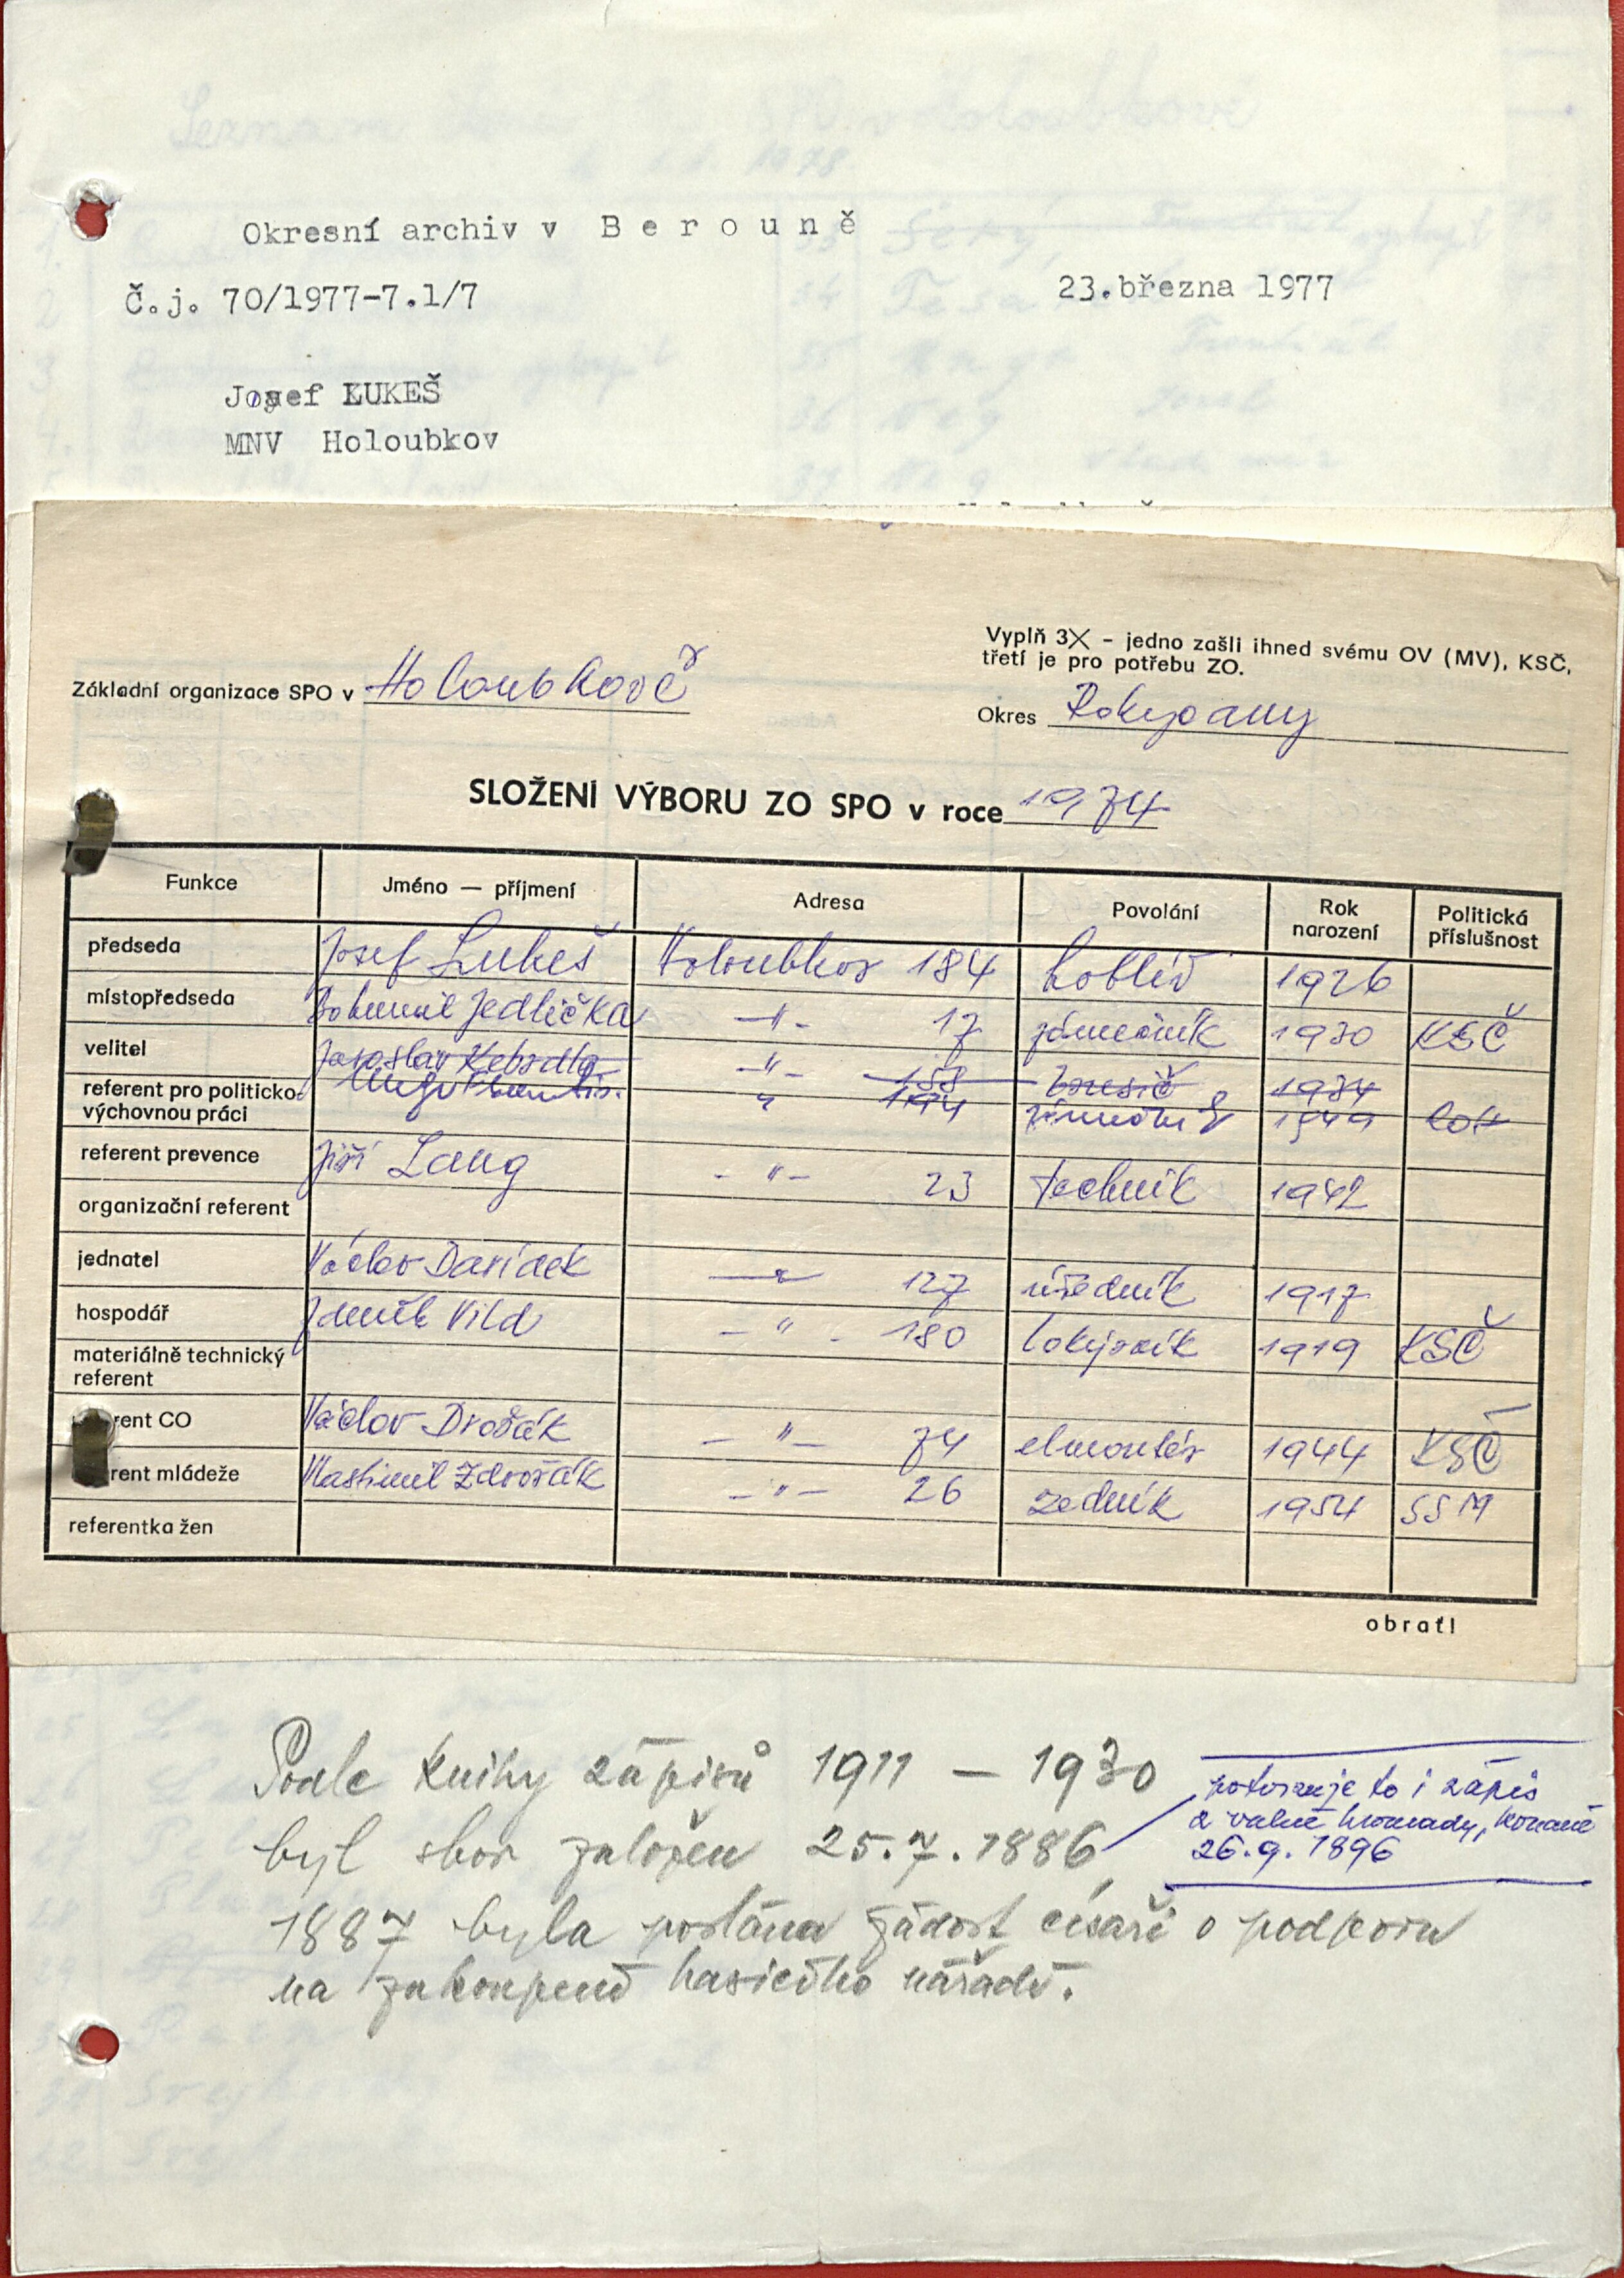 Okresní archiv v B e r o u n ě
Č.j. 70/1977-7.1/7
23.března 1977
Josef LUKEŠ
MNV Holoubkov
Vyplň 3X - jedno zašli ihned svému OV (MV), KSČ,
třetí je pro potřebu ZO.
Základní organizace SPO v Holoubkově
Okres Rokycany
SLOŽENÍ VÝBORU ZO SPO v roce 1974
Funkce Jméno — příjmení Adresa Povolání Rok narození Politická příslušnost
předseda Josef Lukeš Holoubkov 184 1926
místopředseda Bohumil Jedlička -"- 17 zámečník 1930 KSČ
velitel Jaroslav -"- 158 1934
referent pro politicko-
výchovnou práci " 194 zámečník 1949
referent prevence Jiří Lang -"- 23 technik 1942
organizační referent
jednatel Václav Davídek -"- 127 úředník 1917
hospodář Zdeněk Vild -"- 180 1919 KSČ
materiálně technický
referent
rent CO Václav Dvořák -"- 74 elmontér 1944 KSČ
rent mládeže Vlastimil Zdvořák -"- 26 zedník 1954 SSM
referentka žen
obrať!
Podle knihy zápisů 1911 — 1930
byl sbor založen 25.7.1886
potvrzuje to i zápis
z valné hromady, konané
26.9.1896
1887 byla poslána žádost císaři o podporu
na zakoupení hasicího nářadí.